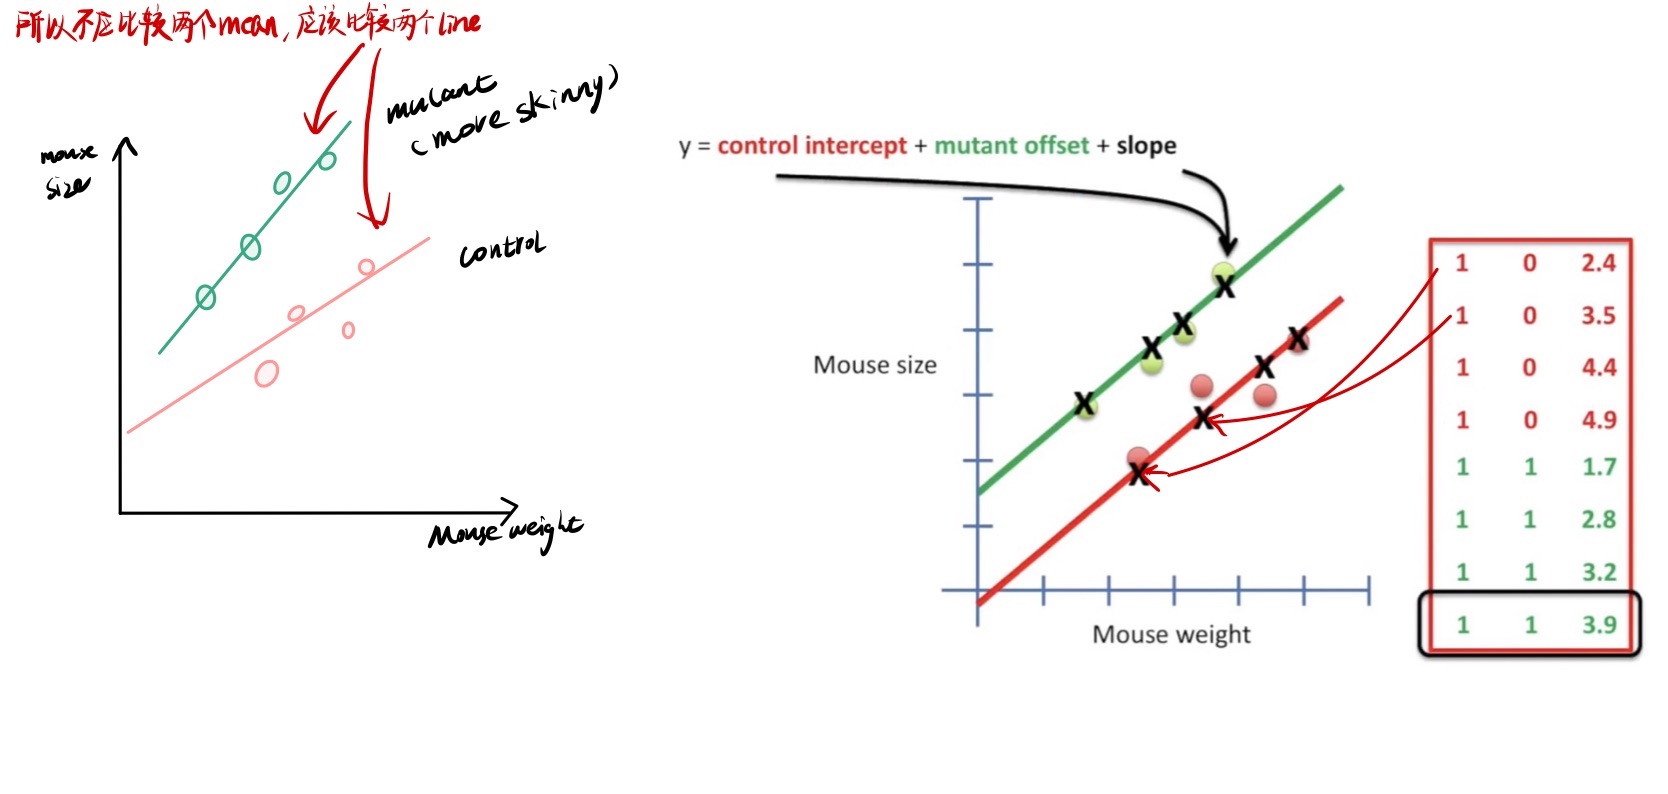 所以不应比较两个mean,应该比较两个line
mutant
(more skinny)
mouse
size
control
Mouse weight
y = control intercept + mutant offset + slope
Mouse size
Mouse weight
1 0 2.4
1 0 3.5
1 0 4.4
1 0 4.9
1 1 1.7
1 1 2.8
1 1 3.2
1 1 3.9
x
x
x
x
x
x
x
x